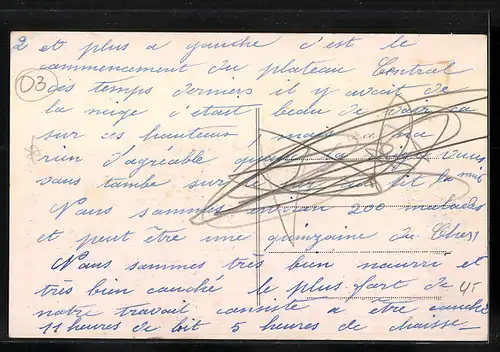 2 et plus a gauche c'est le
commencement du plateau Central
03
ces temps derniers il y avait de
la neige c'etait beau de voir ca
sur ces hauteurs, mais ca na
rien d'agréable quand la
vous tombe sur le fit
Nous sommes environ 200 malades
et peut être une quinzaine du Cher
Nous sommes très bien nourri et
très bien couché le plus fort de
45
notre travail consiste a être couché
11 heures de lit 5 heures de chaise